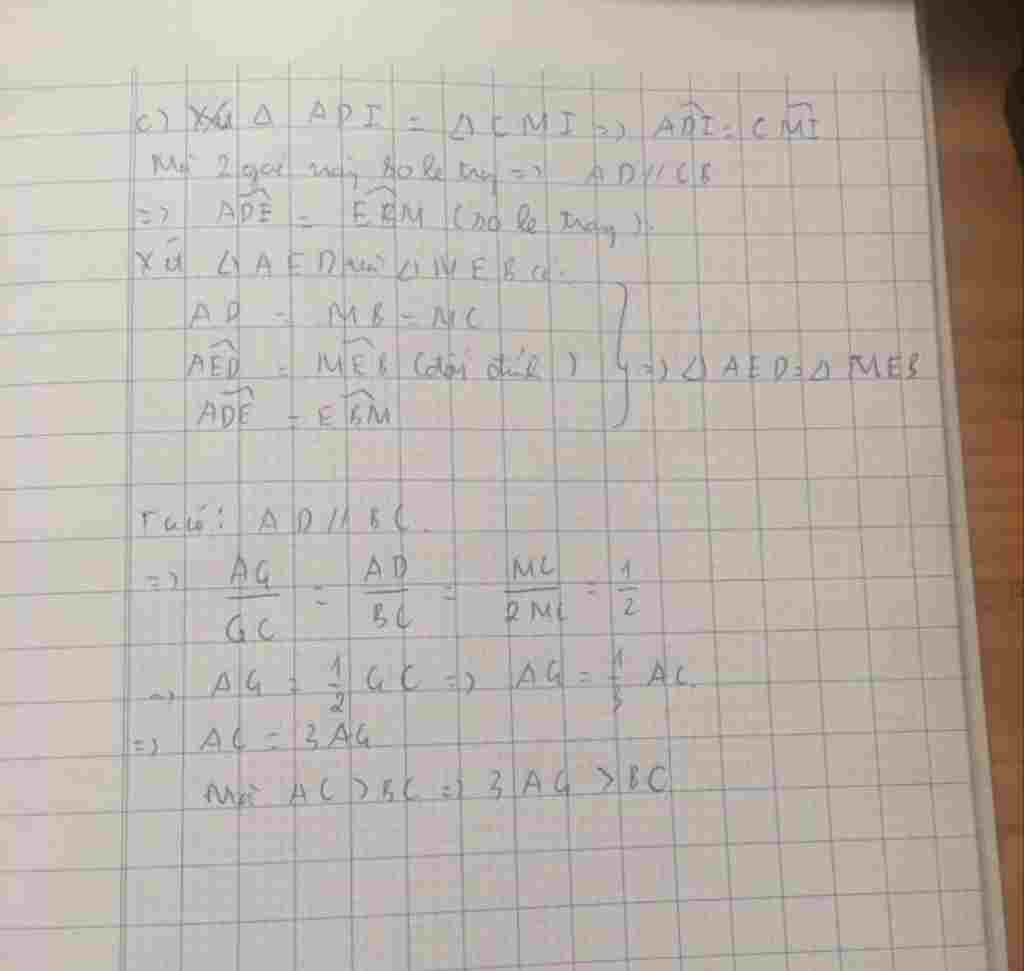 c) Xét Δ ADI = Δ CMI => ADI = CMI
Mà 2 góc này so le trg => AD // CB
=> ADE = EBM (so le trong).
Xét Δ AED và Δ MEB có:
AD = MB = MC
AED = MEB (đối đỉnh)
ADE = EBM
} => Δ AED = Δ MEB
Ta có: AD // BC.
=> AG/GC = AD/BC = MC/2MC = 1/2
=> AG = 1/2 GC => AG = 1/3 AC.
=> AC = 3AG
Mà AC > BC => 3AG > BC